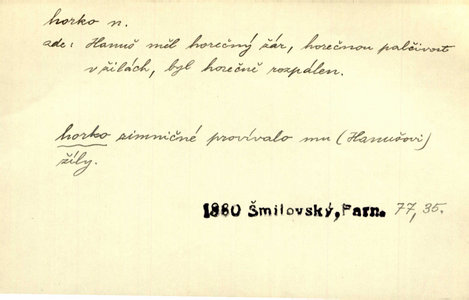 horko n.
zde: Hanuš měl horečný žár, horečnou palčivost
v žilách, byl horečně rozpálen.
horko zimničné provívalo mu (Hanušovi)
žíly.
1880 Šmilovský, Parn. 77, 35.